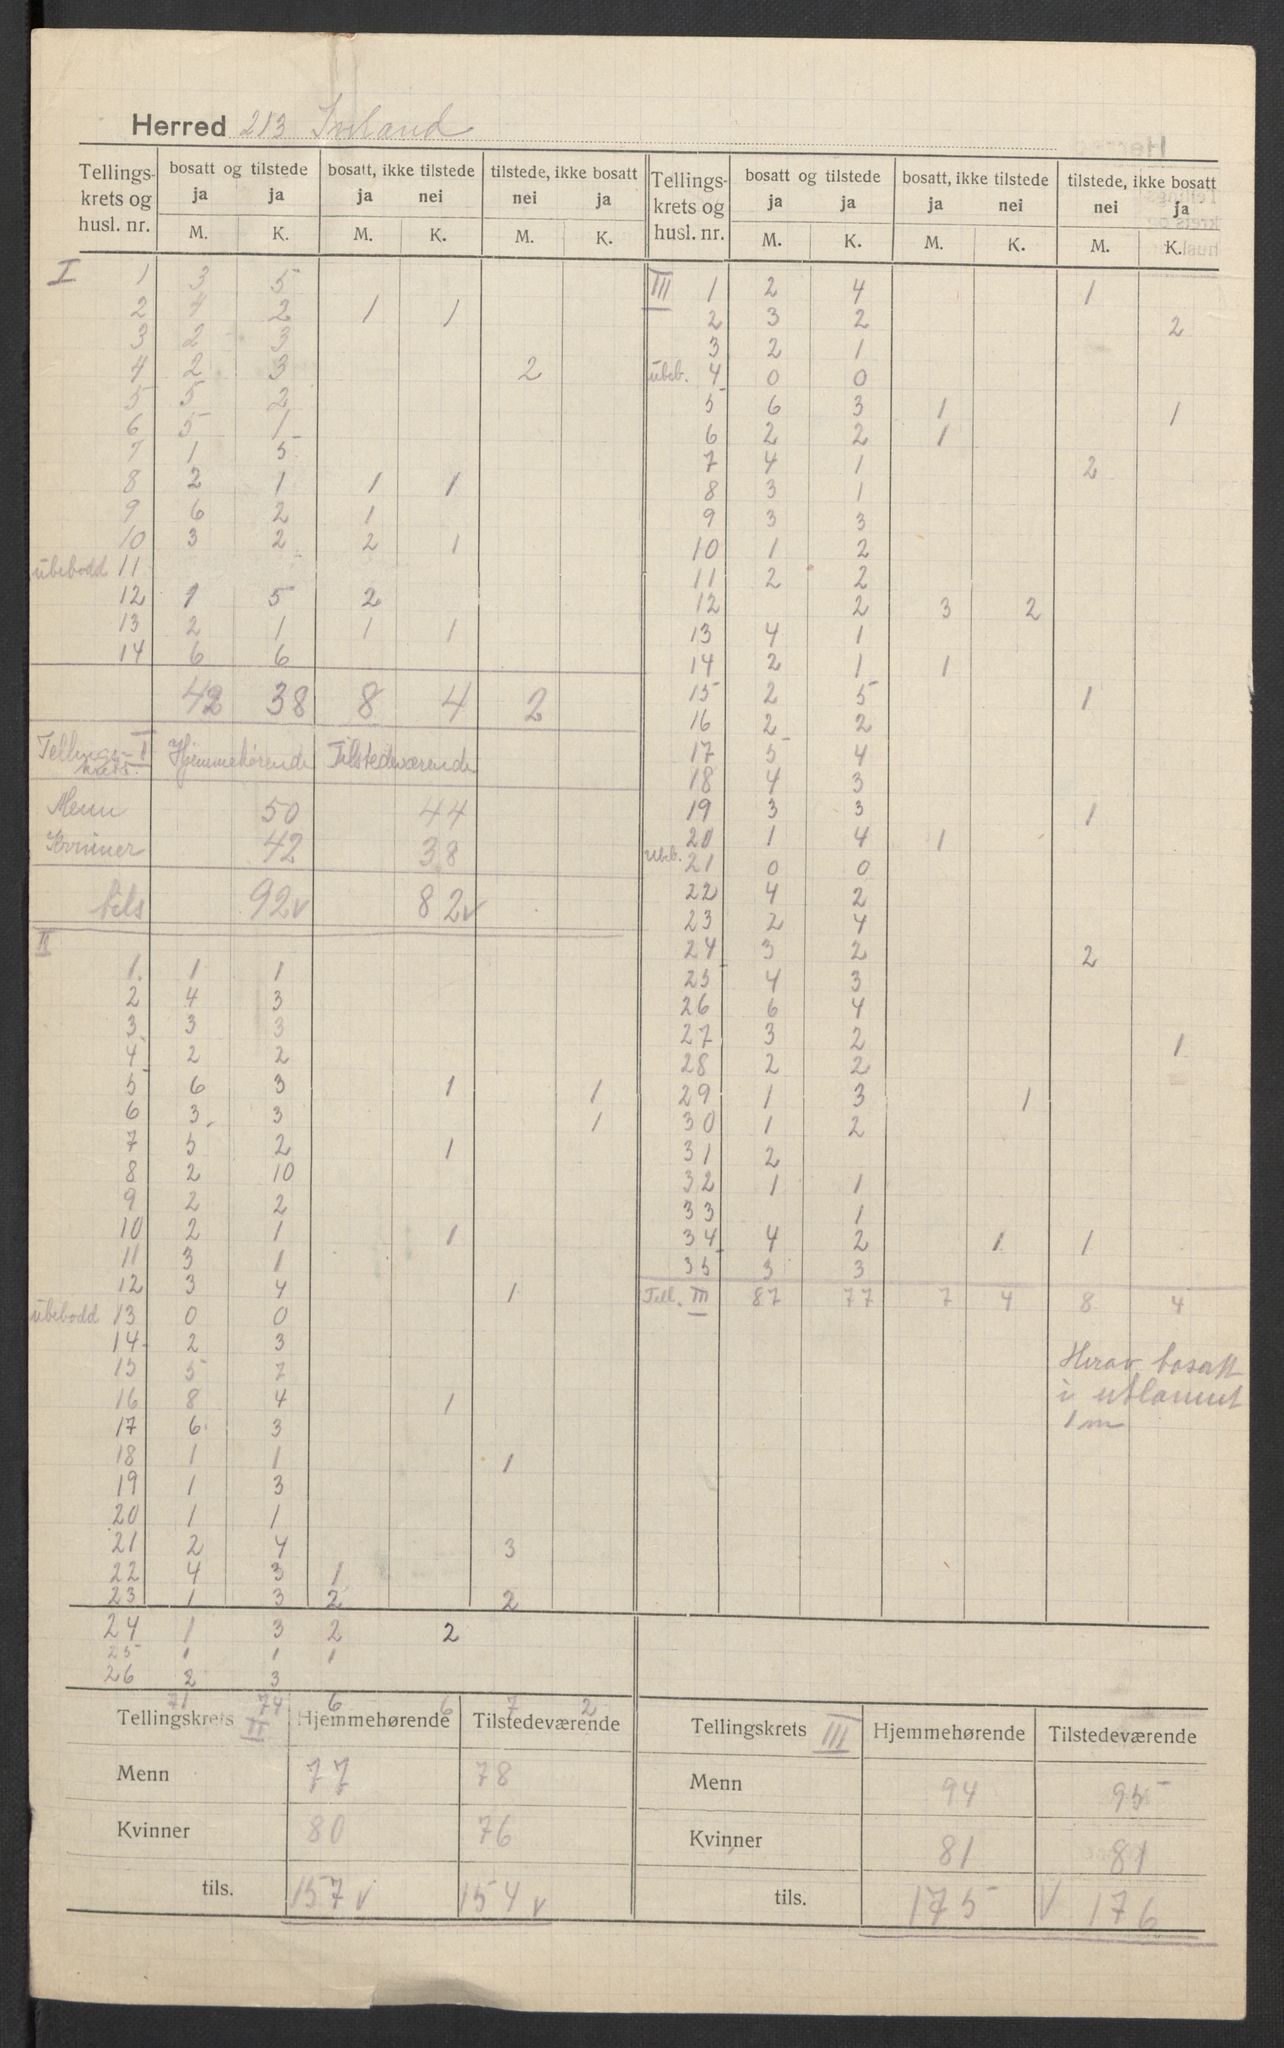 Herred 213 Iveland
Tellings- krets og husl. nr. | bosatt og tilstede ja ja | bosatt, ikke tilstede ja nei | tilstede, ikke bosatt nei ja
M. K. M. K. M. K.
I 1 3 5
2 4 2 1 1
3 2 3
4 2 3 2
5 5 2
6 5 1
7 1 5
8 2 1 1 1
9 6 2 1
10 3 2 2 1
ubebodd 11
12 1 5 2
13 2 1 1 1
14 6 6
42 38 8 4 2
Tellings- krets I Hjemmehørende Tilstedeværende
Menn 50 44
Kvinner 42 38
tils 92 v 82 v
II
1. 1 1
2 4 3
3 3 3
4 2 2
5 6 3 1 1
6 3 3 1
7 5 2 1
8 2 10
9 2 2
10 2 1 1
11 3 1
12 3 4 1
ubebodd 13 0 0
14 2 3
15 5 7
16 8 4 1
17 6 3
18 1 1 1
19 1 3
20 1 1
21 2 4 3
22 4 3 1
23 1 3 2 2
24 1 3 2 2
25 1 1 1
26 2 3
71 74 6 6 7 2
Tellingskrets II Hjemmehørende Tilstedeværende
Menn 77 78
Kvinner 80 76
tils. 157 v 154 v
Tellings- krets og husl. nr. | bosatt og tilstede ja ja | bosatt, ikke tilstede ja nei | tilstede, ikke bosatt nei ja
M. K. M. K. M. K.
III 1 2 4 1
2 3 2 2
3 2 1
ubeb. 4 0 0
5 6 3 1 1
6 2 2 1
7 4 1 2
8 3 1
9 3 3
10 1 2
11 2 2
12 2 3 2
13 4 1
14 2 1 1
15 2 5 1
16 2 2
17 5 4
18 4 3
19 3 3 1
20 1 4 1
Ubeb. 21 0 0
22 4 2
23 2 4
24 3 2 2
25 4 3
26 6 4
27 3 2 1
28 2 2
29 1 3 1
30 1 2
31 2
32 1 1
33 1
34 4 2 1 1
35 3 3
Tell. III 87 77 7 4 8 4
Herav bosatt
i utlannet
1 m
Tellingskrets III Hjemmehørende Tilstedeværende
Menn 94 95
Kvinner 81 81
tils. 175 v 176